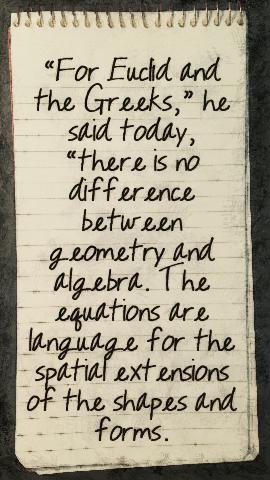 “For Euclid and
the Greeks,” he
said today,
“there is no
difference
between
geometry and
algebra. The
equations are
language for the
spatial extensions
of the shapes and
forms.